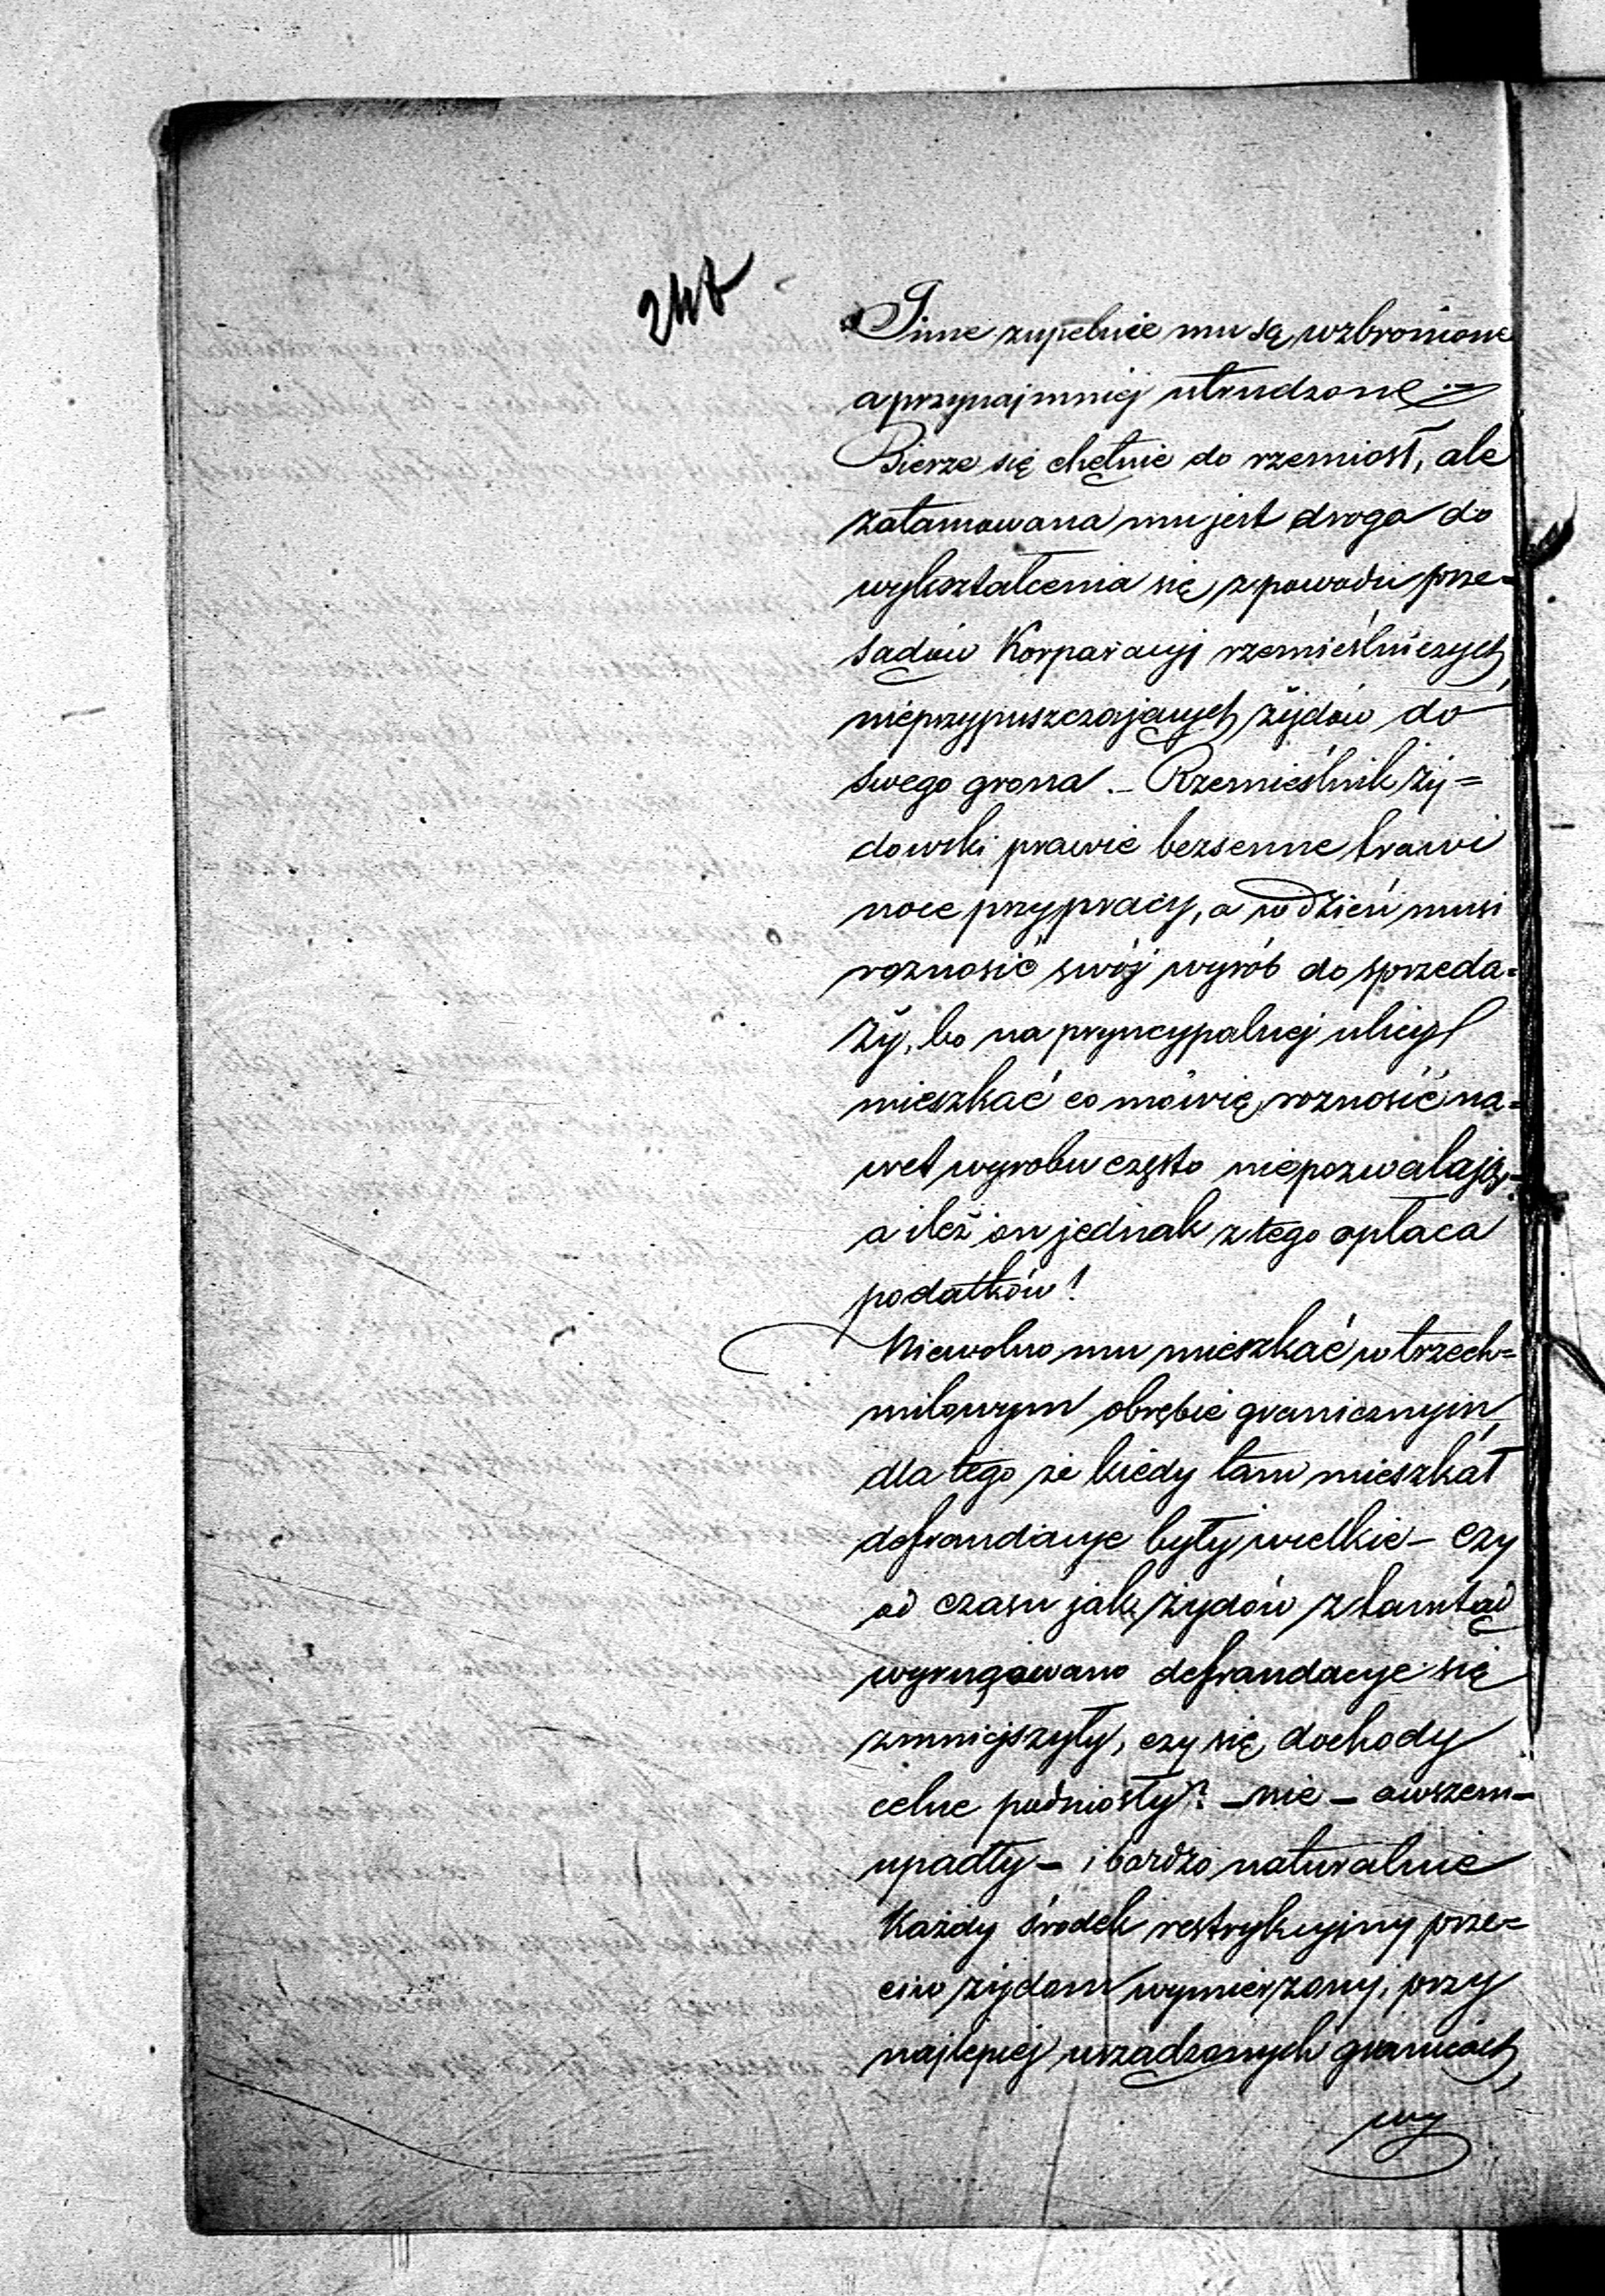 Inne zupełnie mu są wzbronione
a przynajmniej utrudzone
Bierze się chętnie do rzemiosł, ale
zatamowana mu jest droga do
wykształcenia się z powodu prze=
sądów Korporacyj rzemieślniczych,
nieprzypuszczających żydów do
swego grona. – Rzemieślnik ży=
dowski prawie bezsenne trawi
noce przy pracy, a w dzień musi
roznosić swój wyrób do sprzeda=
ży, bo na pryncypalnej ulicy
mieszkać co mówię roznosić na=
wet wyrobu często niepozwalają, –
a ileż on jednak z tego opłaca
podatków!
Niewolno mu mieszkać w trzech=
milowym obrębie granicznym,
dla tego że kiedy tam mieszkał
defraudacye były wielkie – czy
od czasu jak żydów z tamtąd
wyrugowano defraudacye się
zmniejszyły, czy się dochody
celne podniosły? – nie – owszem –
upadły – i bardzo naturalnie
Każdy środek restrykcyjny prze=
ciw żydom wymierzony, przy
najlepiej urządzonych granicach,
wy